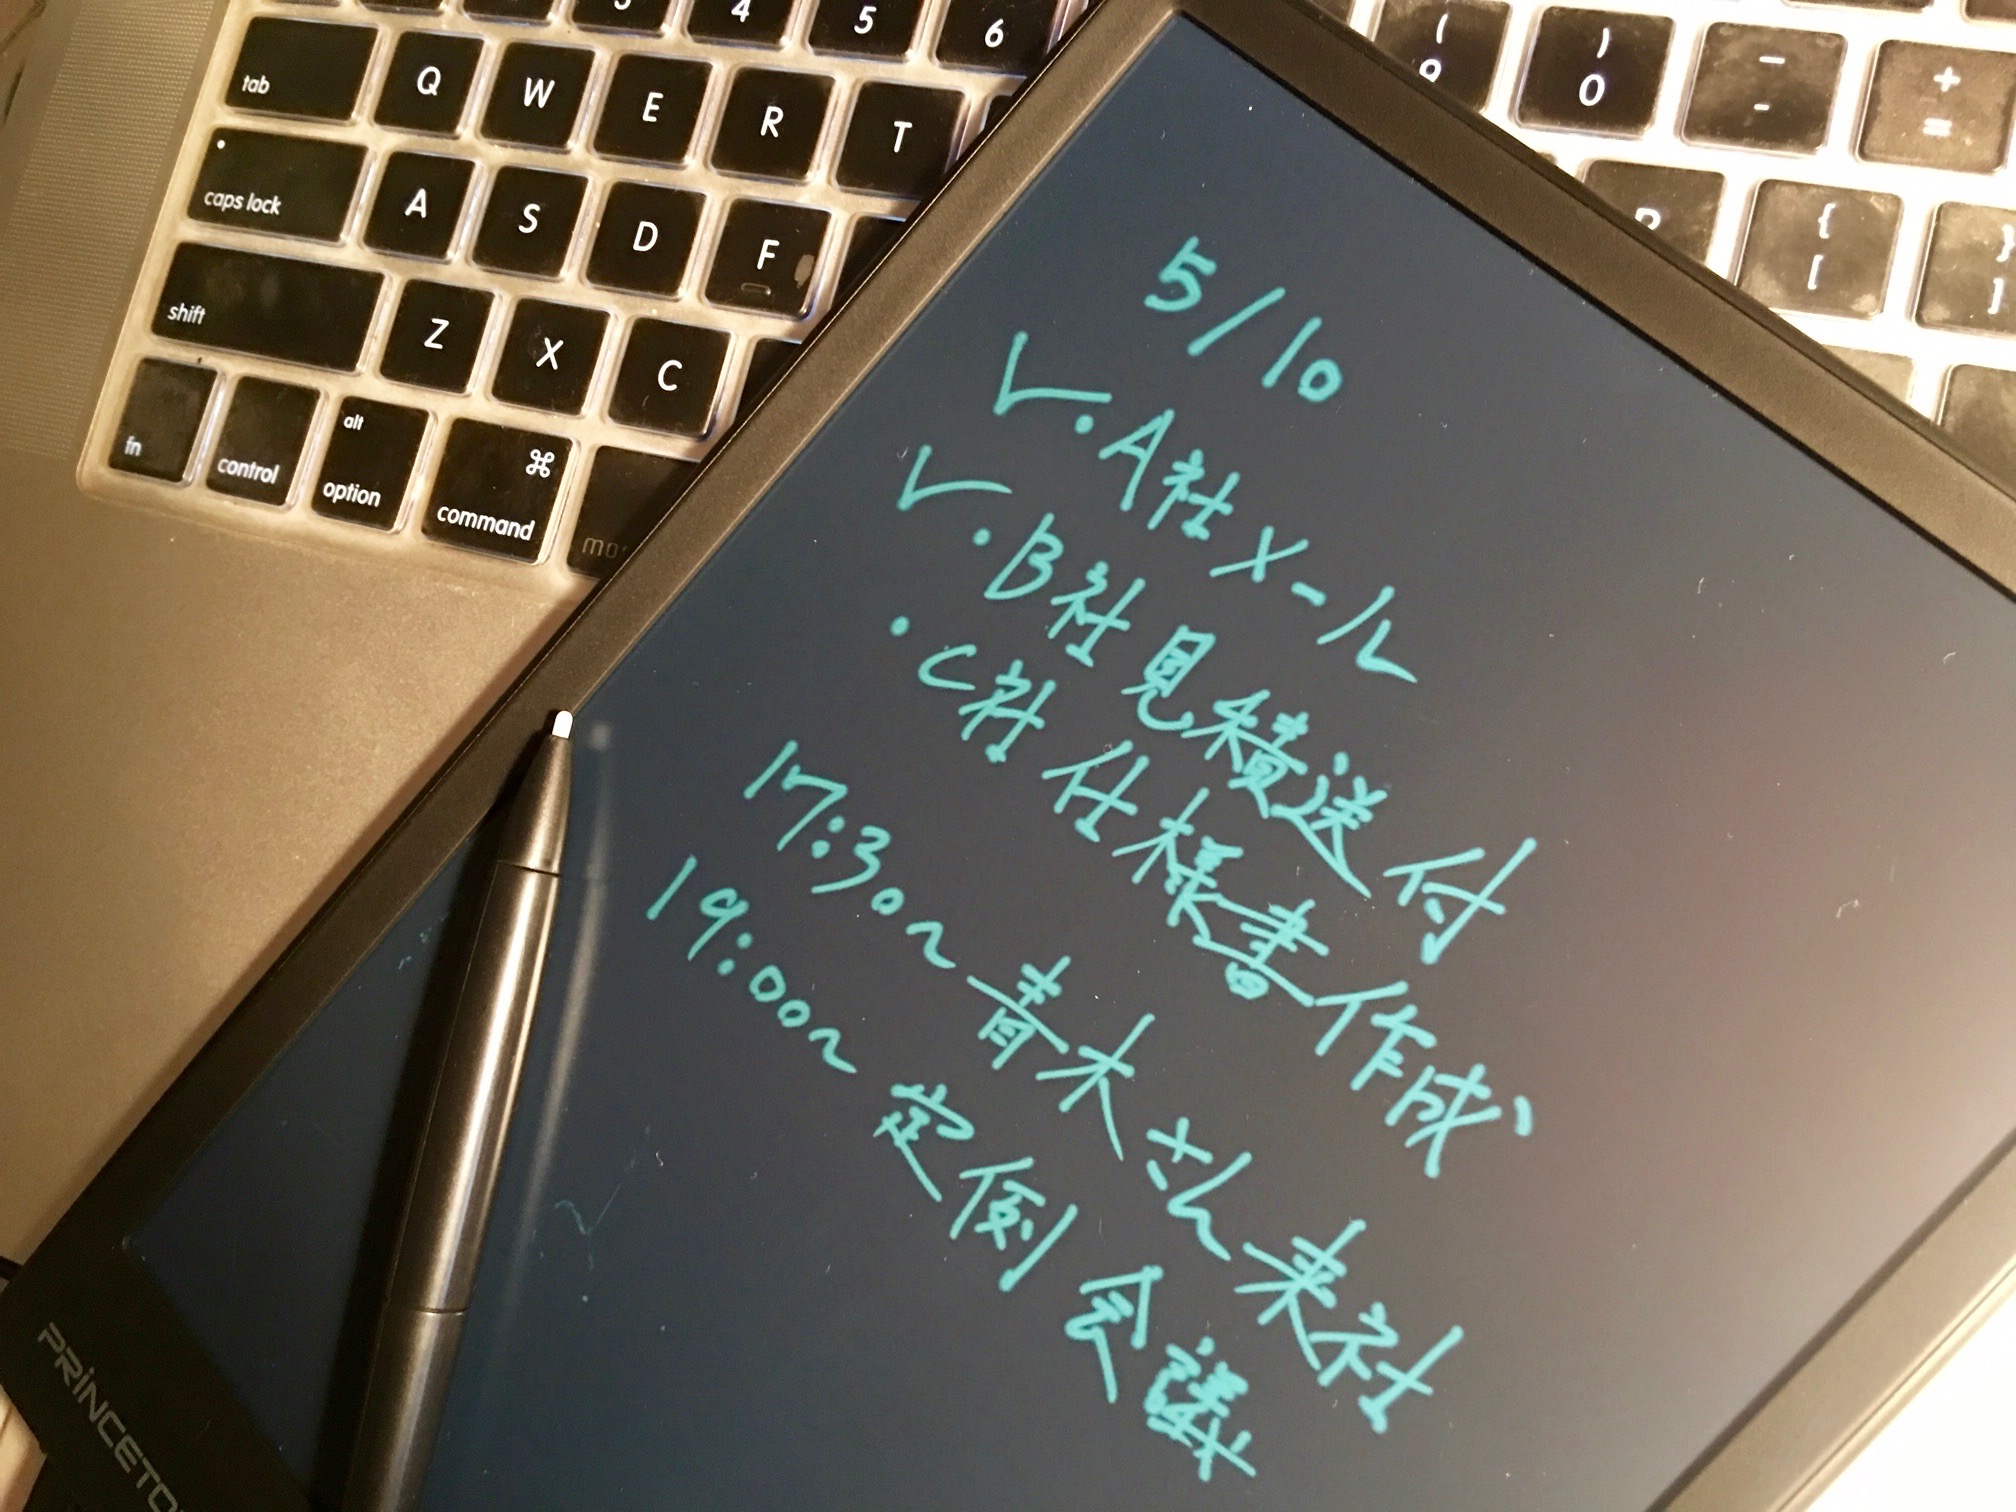 3 4 5 6
tab Q W E R T
caps lock A S D F
shift Z X C
fn control alt option ⌘ command
( 9 ) 0 - - + =
P { [ } ]
5/10
✓・A社メール
✓・B社見積送付
・C社仕様書作成
17:30〜青木さん来社
19:00〜定例会議
PRINCETON